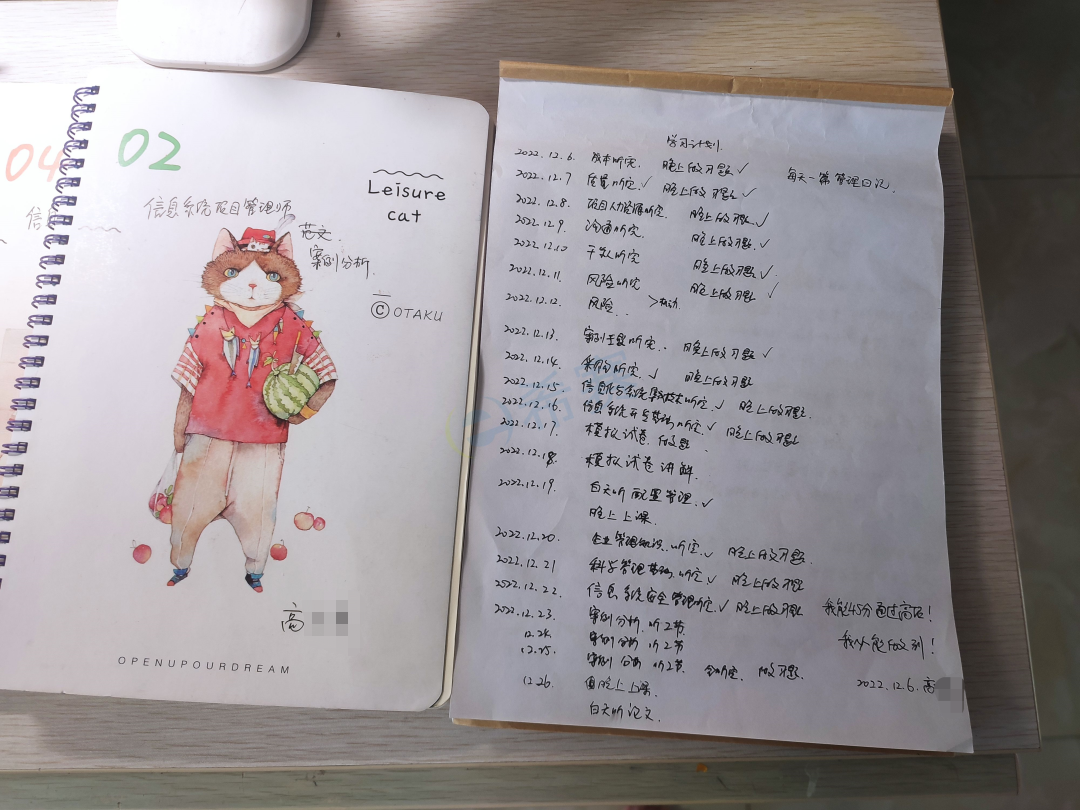 04
信
02
信息系统项目管理师
范文.
案例分析.
Leisure
cat
© OTAKU
高
OPENUPOURDREAM
学习计划.
每天一篇管理日记.
2022.12.6. 成本听完. 晚上做习题 ✓
2022.12.7 质量听完 ✓ 晚上做习题 ✓
2022.12.8. 项目人力资源听完. 晚上做习题 ✓
2022.12.9. 沟通听完. 晚上做习题 ✓
2022.12.10 干系人听完 晚上做习题 ✓
2022.12.11. 风险听完 晚上做习题 ✓
2022.12.12. 风险..
2022.12.13. 案例主要听完. 晚上做习题 ✓
2022.12.14. 采购听完. ✓ 晚上做习题
2022.12.15. 信息化与系统集成技术听完. ✓ 晚上做习题.
2022.12.16. 信息系统听完. ✓ 晚上做习题
2022.12.17. 模拟试卷 做题.
2022.12.18. 模拟试卷讲解.
2022.12.19. 白天听配置管理. ✓
晚上上课.
2022.12.20. 企业管理知识. 听完 ✓ 晚上做习题.
2022.12.21 科学管理基础. 听完 ✓ 晚上做习题
2522.12.22. 信息系统安全管理听完. ✓ 晚上做习题
2022.12.23. 案例分析. 听2节.
12.24. 案例分析 听2节
12.25. 案例分析 听2节 全听完. 做习题.
12.26. 晚上上课.
白天听论文.
我能45分通过高项!
我心能做到!
2022.12.6. 高